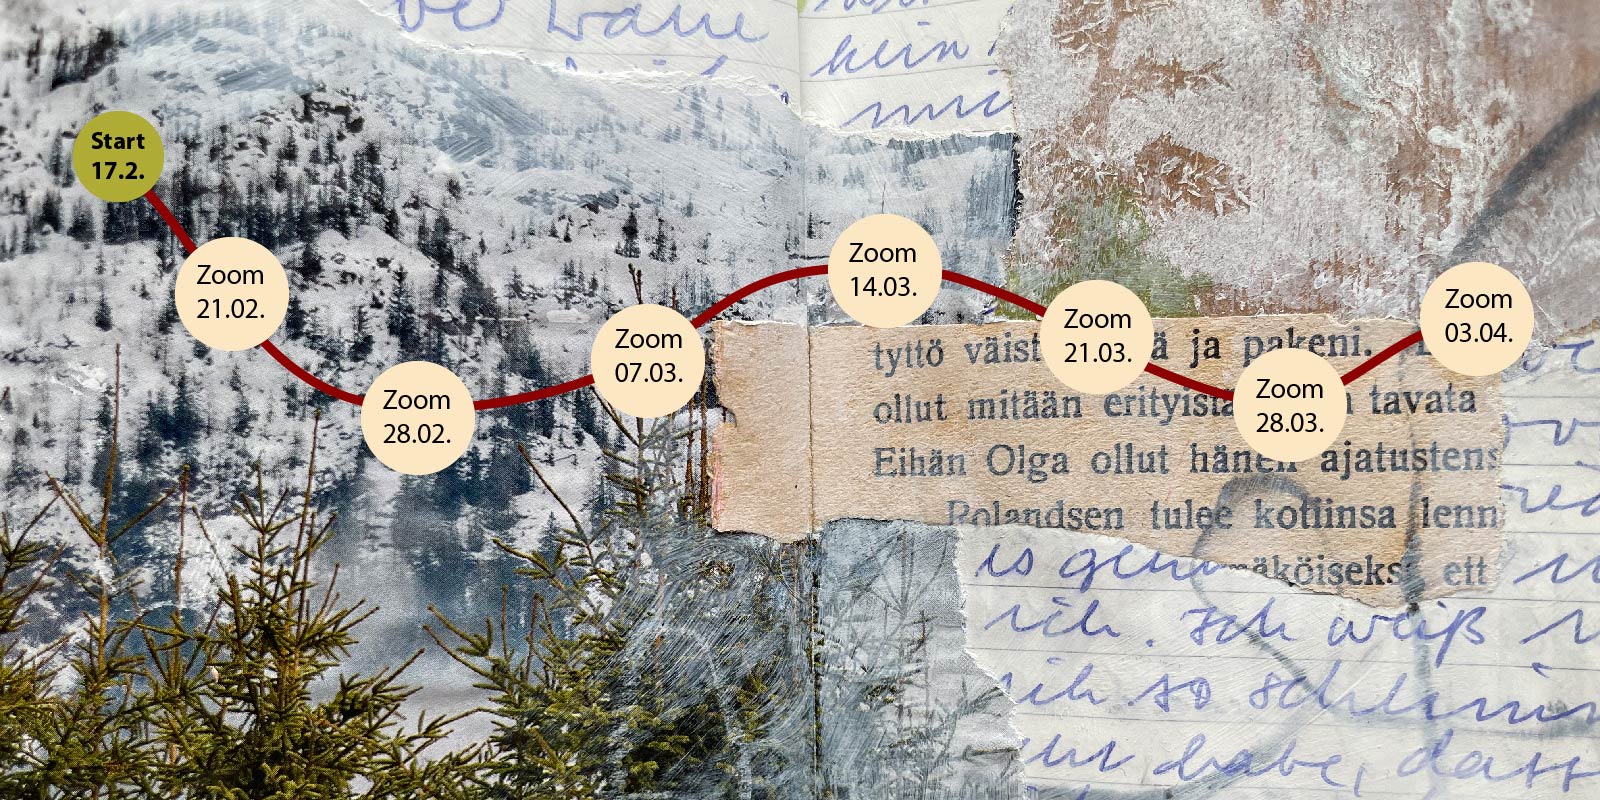 be wäre
kein
Start
17.2.
Zoom
21.02.
Zoom
28.02.
Zoom
07.03.
Zoom
14.03.
Zoom
21.03.
Zoom
28.03.
Zoom
03.04.
tyttö väist ä ja pakeni.
ollut mitään erityistä tavata
Eihän Olga ollut hänen ajatustens
Rolandsen tulee kotiinsa lenn
mäköiseks ett
is genu
ich. Ich weiß
ich so schlimm
habe, dass